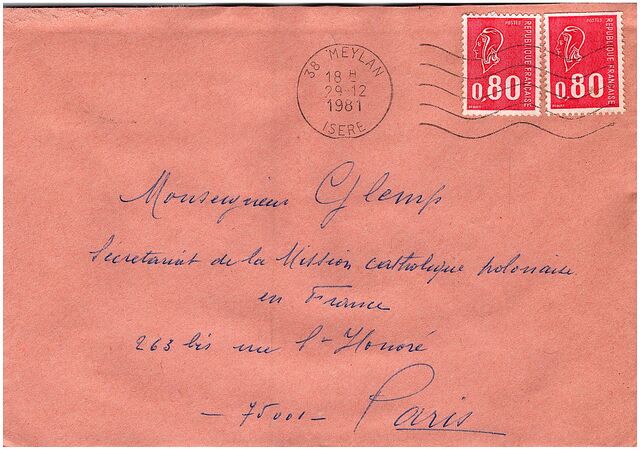 38 MEYLAN
18 H
29-12
1981
ISERE
POSTES
REPUBLIQUE FRANCAISE
0,80
POSTES
REPUBLIQUE FRANCAISE
0,80
Monseigneur Glemp
Sécretariat de la Mission catholique polonaise
en France
263 bis rue St-Honoré
- 75001 - Paris